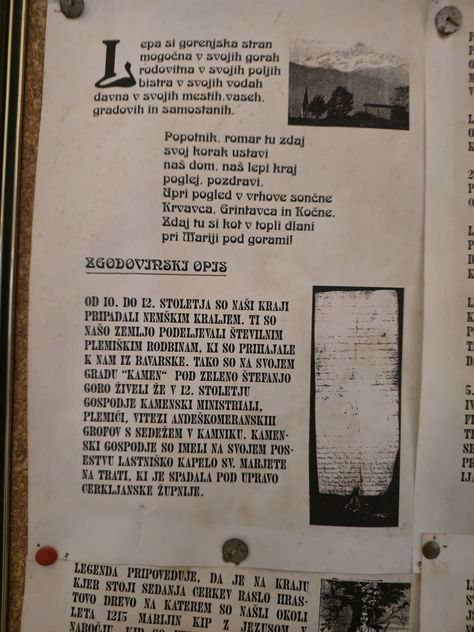 Lepa si gorenjska stran
mogočna v svojih gorah
rodovitna v svojih poljih
bistra v svojih vodah
davna v svojih mestih, vaseh,
gradovih in samostanih.
Popotnik, romar tu zdaj
svoj korak ustavi
naš dom, naš lepi kraj
poglej, pozdravi.
Upri pogled v vrhove sončne
Krvavca, Grintavca in Kočne.
Zdaj tu si kot v topli dlani
pri Mariji pod gorami!
ZGODOVINSKI OPIS
OD 10. DO 12. STOLETJA SO NAŠI KRAJI
PRIPADALI NEMŠKIM KRALJEM. TI SO
NAŠO ZEMLJO PODELJEVALI ŠTEVILNIM
PLEMIŠKIM RODBINAM, KI SO PRIHAJALE
K NAM IZ BAVARSKE. TAKO SO NA SVOJEM
GRADU "KAMEN" POD ZELENO ŠTEFANJO
GORO ŽIVELI ŽE V 12. STOLETJU
GOSPODJE KAMENSKI MINISTRIALI,
PLEMIČI, VITEZI ANDEŠKOMERANSKIH
GROFOV S SEDEŽEM V KAMNIKU. KAMEN-
SKI GOSPODJE SO IMELI NA SVOJEM POS-
ESTVU LASTNIŠKO KAPELO SV. MARJETE
NA TRATI, KI JE SPADALA POD UPRAVO
CERKLJANSKE ŽUPNIJE.
LEGENDA PRIPOVEDUJE, DA JE NA KRAJU
KJER STOJI SEDANJA CERKEV RASLO HRAS-
TOVO DREVO NA KATEREM SO NAŠLI OKOLI
LETA 1215 MARIJIN KIP Z JEZUSOM V